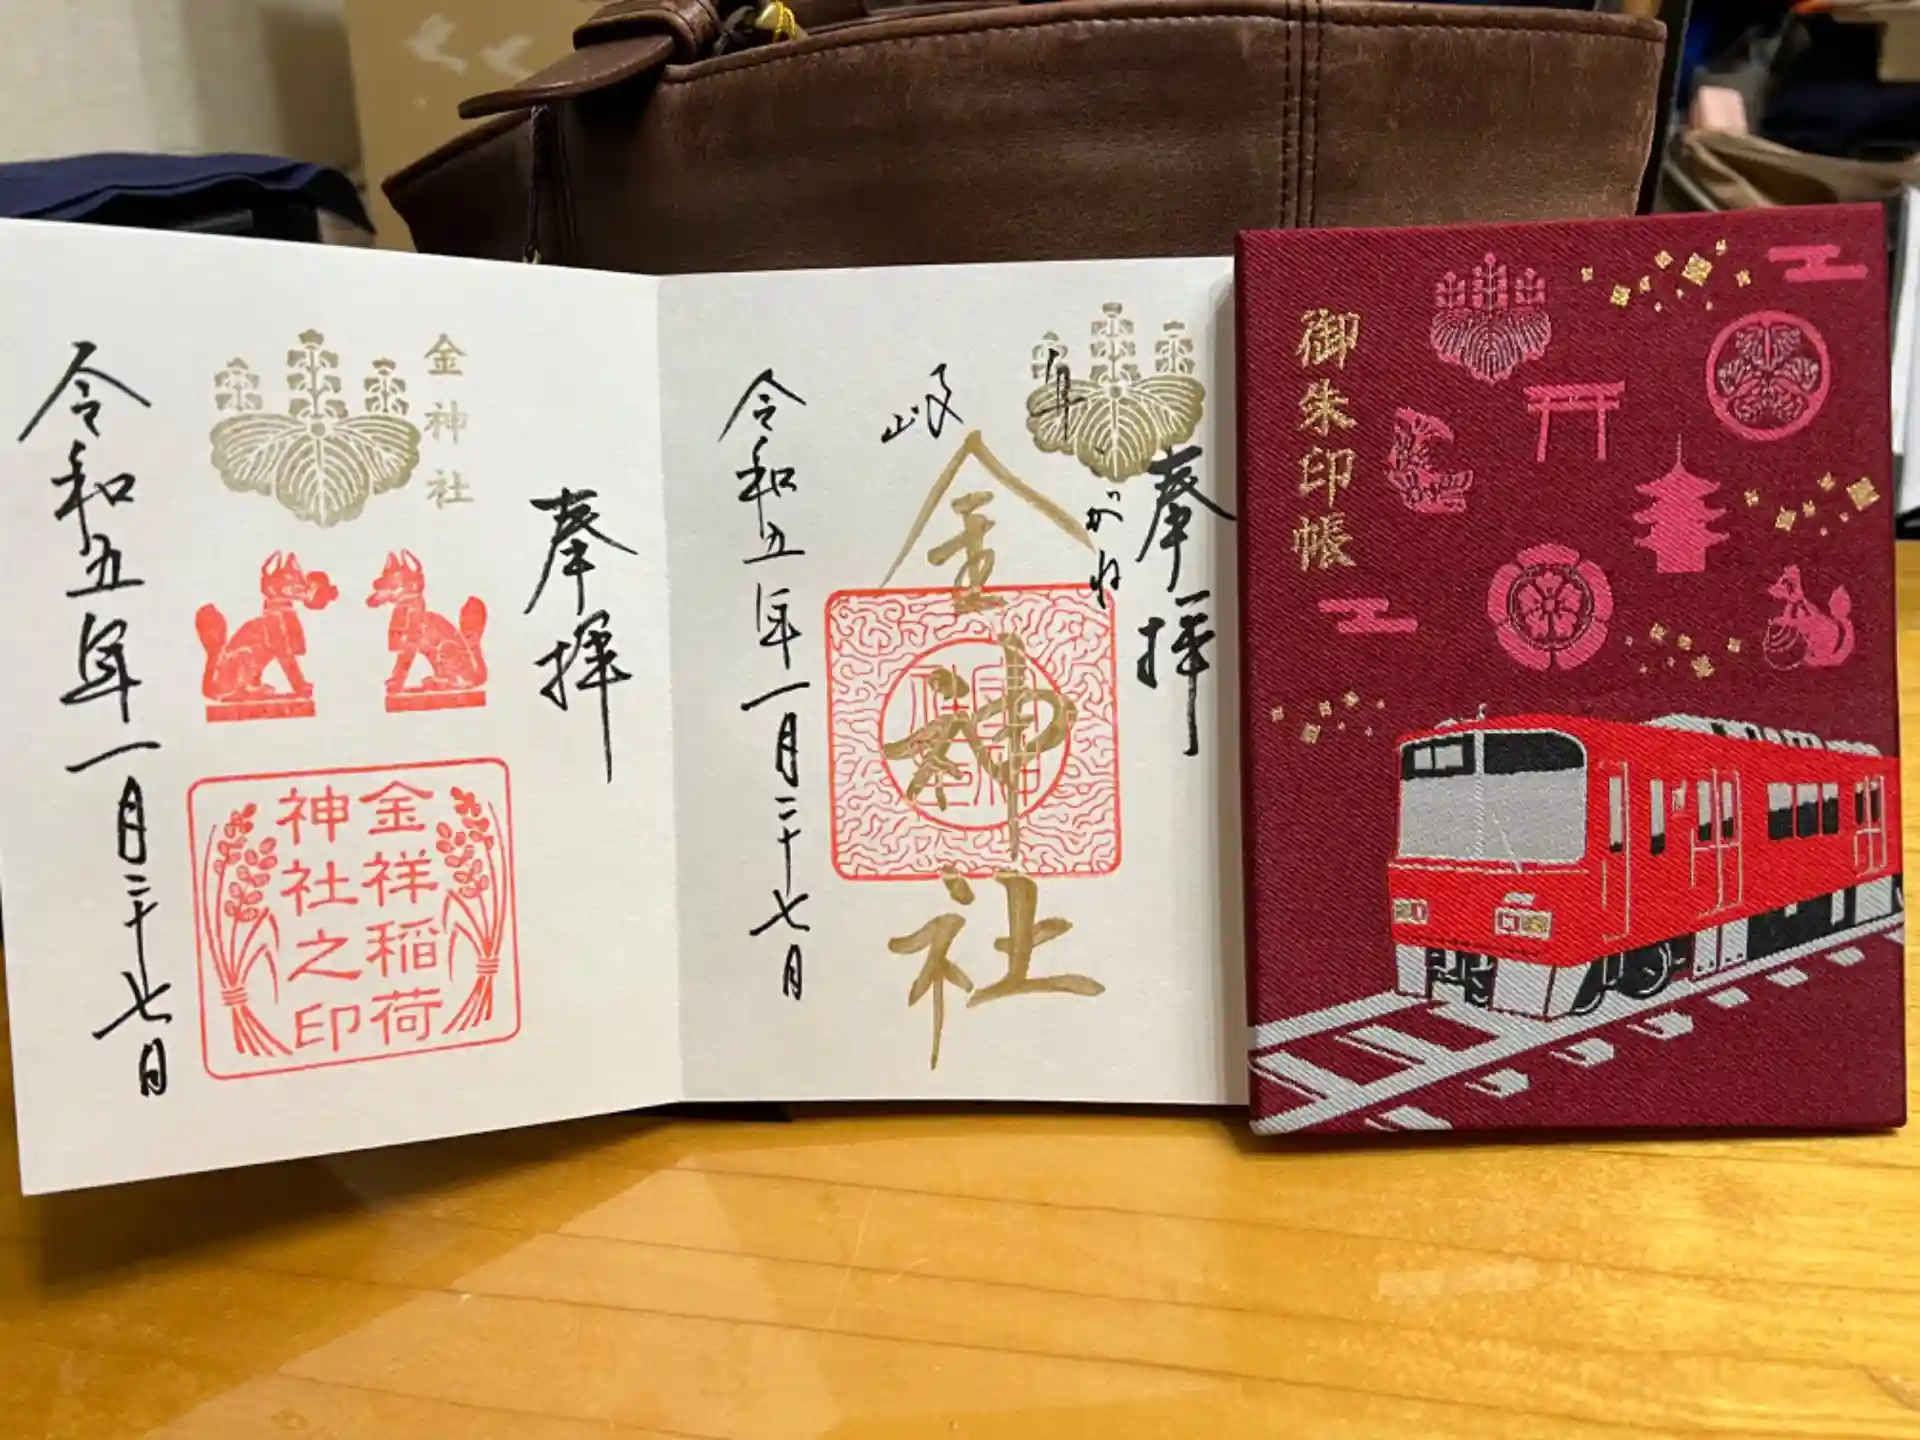 奉拝
金神社
金祥稲荷
神社之印
令和五年一月二十七日
奉拝
がね
岐阜
金神社
令和五年一月二十七日
御朱印帳